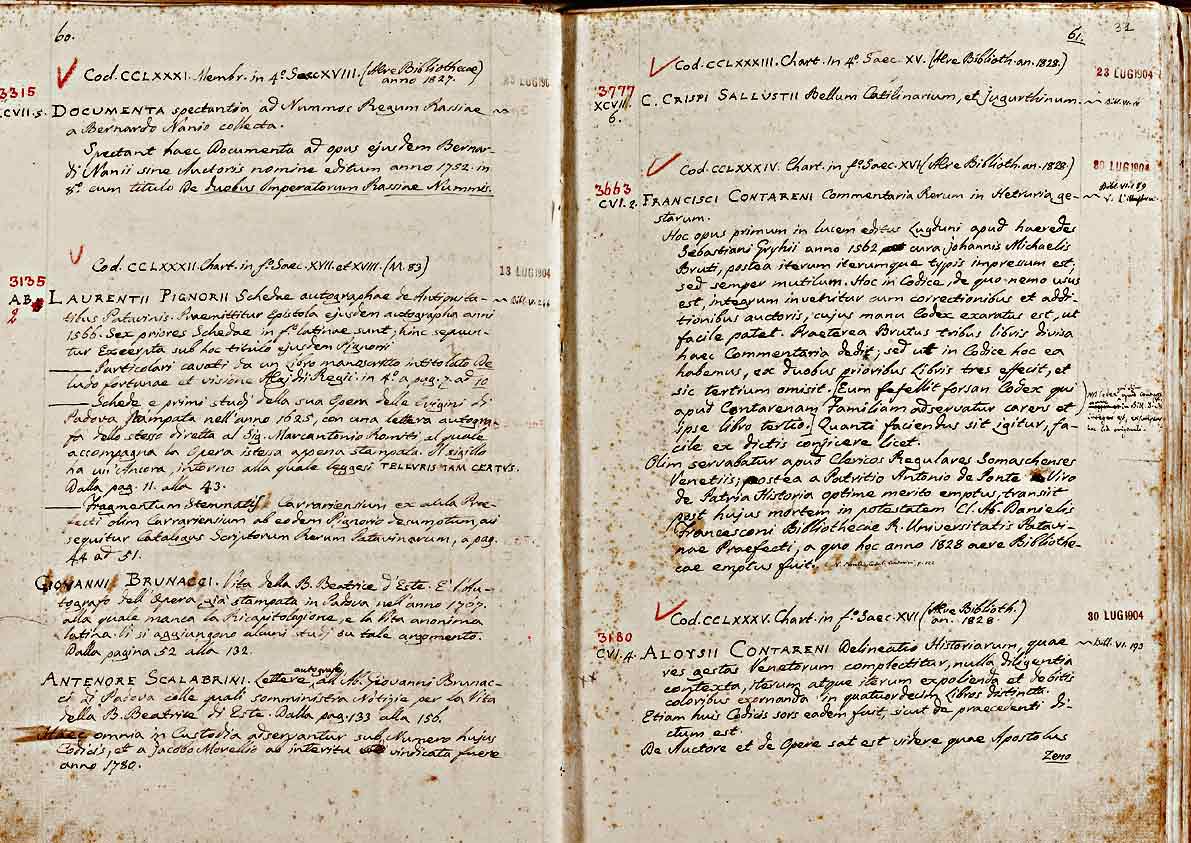 60.
Cod. CCLXXXI. Membr. in 4.º Saec. XVIII. (Aere Bibliothecae
anno 1827.)
3315
CVII. 5.
DOCUMENTA spectantia ad Nummos Regum Rassiae
a Bernardo Nanio collecta.
Spectant haec Documenta ad opus ejusdem Bernar-
di Nanii sine Auctoris nomine editum anno 1752. in
8.º cum titulo De duobus Imperatorum Rassiae Nummis.
Cod. CCLXXXII. Chart. in fº. Saec. XVII. et XVIII. (M. 83)
13 LUG 1904
3135
AB.
2
LAURENTII PIGNORII Schedae autographae de Antiquita-
tibus Patavinis. Praemittitur Epistola ejusdem autographa anni
1566. Sex priores Schedae in fº. latinae sunt, hinc sequun-
tur Excerpta sub hoc titulo ejusdem Pignorii
Particolari cavati da un Libro manoscritto intitolato De
ludo fortunae et visione in 4.º a pag. 7. ad 10
Schede e primi studj della sua Opera delle Origini di
Padova stampata nell'anno 1625, con una lettera autogra-
fa dello stesso diretta al Sig. Marcantonio al quale
accompagna la Opera istessa appena stampata. Il sigillo
ha un'Ancora, intorno alla quale leggesi
Dalla pag. 11. alla 43.
Fragmentum Stemmatis Carrariensium ex aula Prae-
fecti olim Carrariensium ab eodem Pignorio desumptum, cui
sequitur Catalogus Scriptorum Rerum Patavinarum, a pag.
44 ad 51.
GIOVANNI BRUNACCI. Vita della B. Beatrice d'Este. E' l'Au-
tografo dell'Opera già stampata in Padova nell'anno 1767.
alla quale manca la Ricapitolazione, e la Vita anonima
latina. Vi si aggiungono alcuni studj su tale argomento.
Dalla pagina 52 alla 132.
ANTENORE SCALABRINI. Lettere autografe al Ab. Giovanni Brunac-
ci di Padova colle quali somministra Notizie per la Vita
della B. Beatrice di Este. Dalla pag. 133 alla 156.
Haec omnia in Custodia adservantur sub Numero hujus
Codicis, et a Jacobo Morellio ab interitu vindicata fuere
anno 1780.
61.
Cod. CCLXXXIII. Chart. in 4º. Saec. XV. (Aere Biblioth. an. 1828.)
23 LUG 1904
3777
XCVII.
6.
C. CRISPI SALLUSTII Bellum Catilinarium, et Jugurthinum.
Cod. CCLXXXIV. Chart. in fº. Saec. XVI. (Aere Biblioth. an. 1828.)
3663
CVI. 2.
FRANCISCI CONTARENI Commentaria Rerum in Hetruria ge-
starum.
Hoc opus primum in lucem editus Lugduni apud haeredes
Sebastiani Gryhii anno 1562 cura Johannis Michaelis
Bruti, postea iterum iterumque typis impressum est;
sed semper mutilum. Hoc in Codice, de quo nemo usus
est, integrum invenitur cum correctionibus et addi-
tionibus auctoris, cujus manu Codex exaratus est, ut
facile patet. Praeterea Brutus tribus libris divisa
haec Commentaria dedit; sed ut in Codice hoc ea
habemus, ex duobus prioribus Libris tres effecit, et
sic tertium omisit. Eum fefellit forsan Codex qui
apud Contarenam Familiam adservatur carens et
ipse libro tertio. Quanti faciendus sit igitur, fa-
cile ex dictis conjicere licet.
Olim servabatur apud Clericos Regulares Somaschenses
Venetiis; postea a Patritio Antonio de Ponte Viro
de Patria Historia optime merito emptus, transiit
post hujus mortem in potestatem Cl. Ab. Danielis
Francesconi Bibliothecae R. Universitatis Patavi-
nae Praefecti, a quo hoc anno 1828 aere Bibliothe-
cae emptus fuit.
Cod. CCLXXXV. Chart. in fº. Saec. XVI (Aere Biblioth.
an. 1828.)
30 LUG 1904
3180
CVI. 4.
ALOYSII CONTARENI Delineatio Historiarum, quae
res gestas Venetorum complectitur, nulla diligentia
contexta, iterum atque iterum expolienda et debitis
coloribus exornanda in quatuordecim Libros distincta.
Etiam huis Codicis sors eadem fuit, sicut de praecedenti di-
ctum est.
De Auctore et de Opere sat est videre quae Apostolus
Zeno